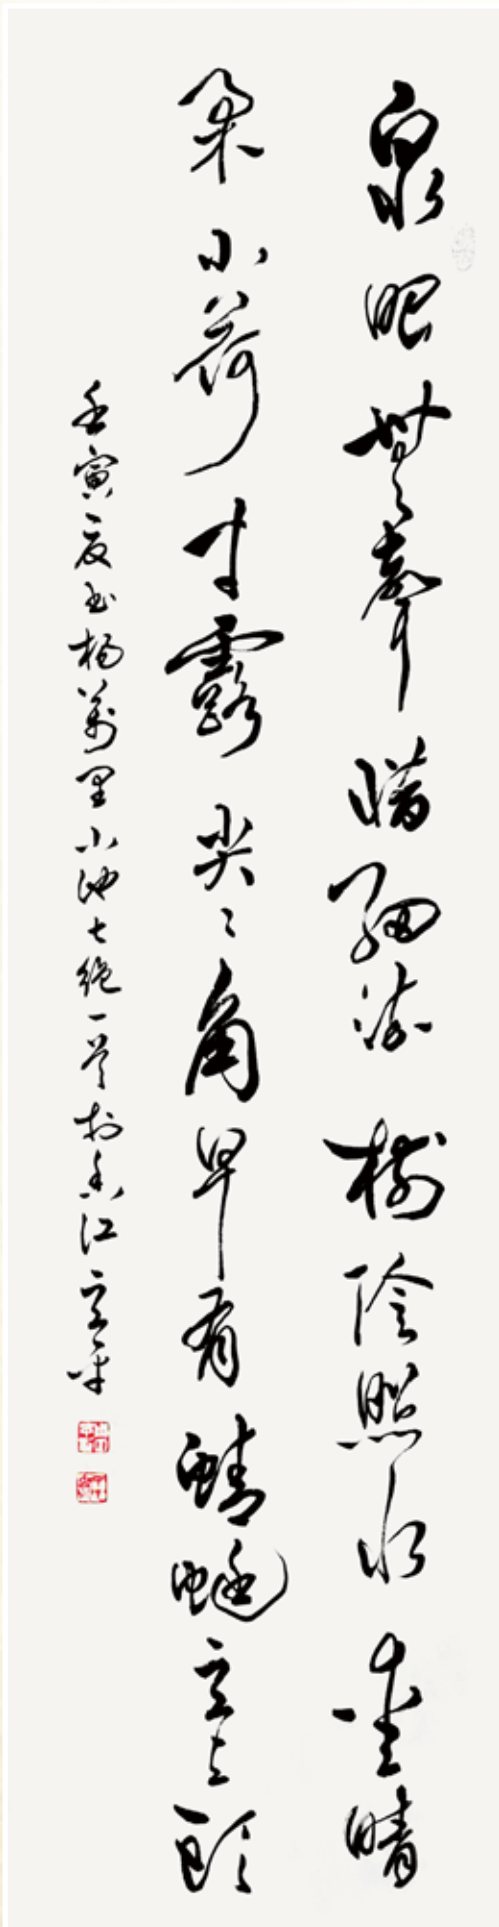 泉眼無聲惜細流樹陰照水愛晴
柔小荷才露尖〻角早有蜻蜓立上頭
壬寅夏書楊萬里小池七絕一首於香江立平